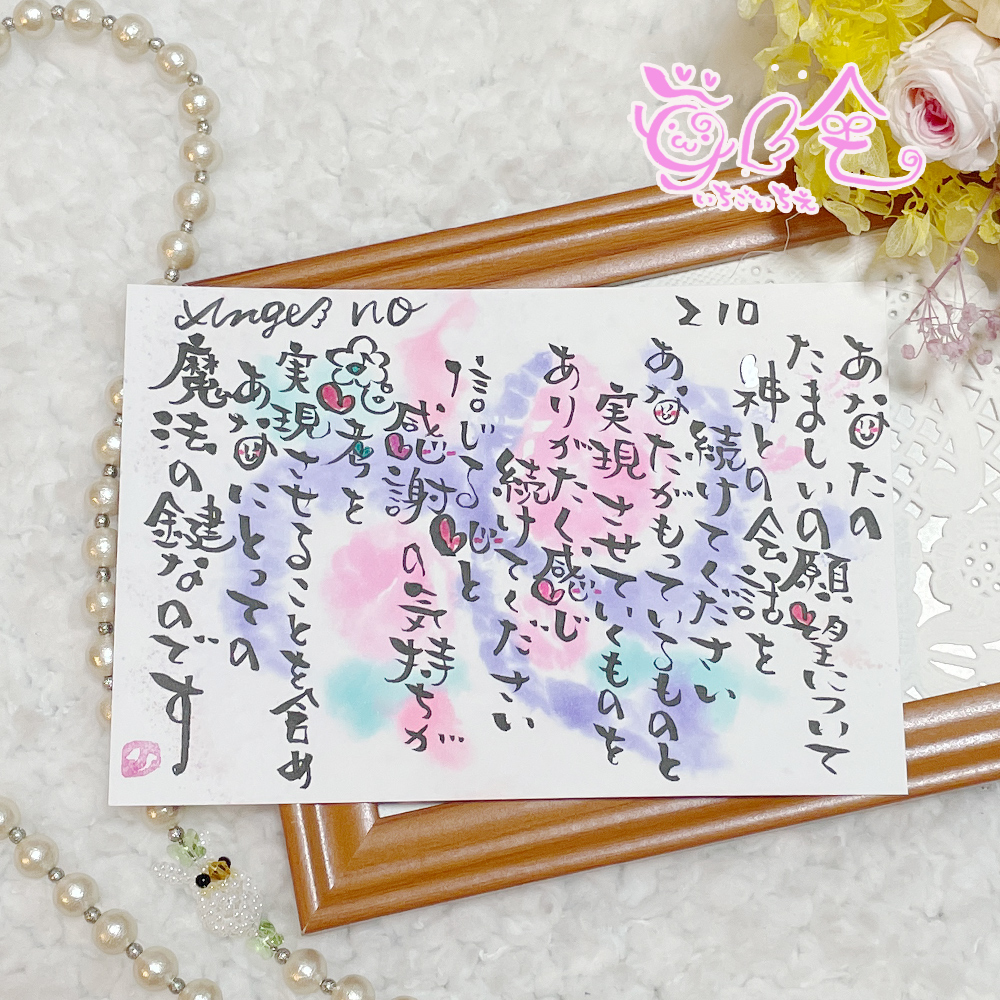 苺絵
いちごいちえ
Angel no 210
あなたの
たましいの願望について
神との会話を
続けてください
あなたがもっているものと
実現させていくものを
ありがたく感じ
続けてください
信じる心と
感謝の気持ちが
思考を
実現させることを含め
あなたにとっての
魔法の鍵なのです